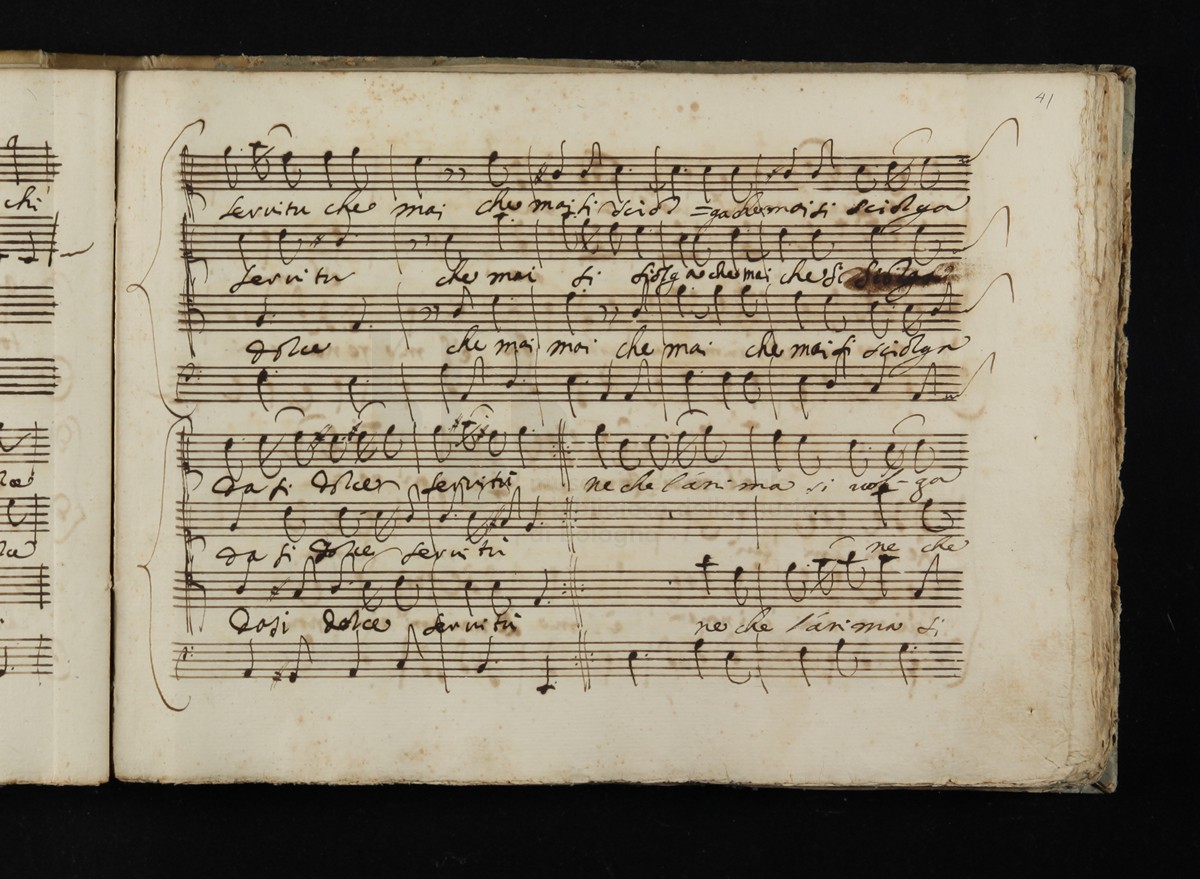 41
chi
servitu che mai che mai si sciol =ga che mai si sciolga
servitu che mai si siolga che mai che si
dolce che mai mai che mai che mai si sciolga
da si dolce servitù ne che l'anima si
da si dolce servitù ne che
dasi dolce servitù ne che l'anima si